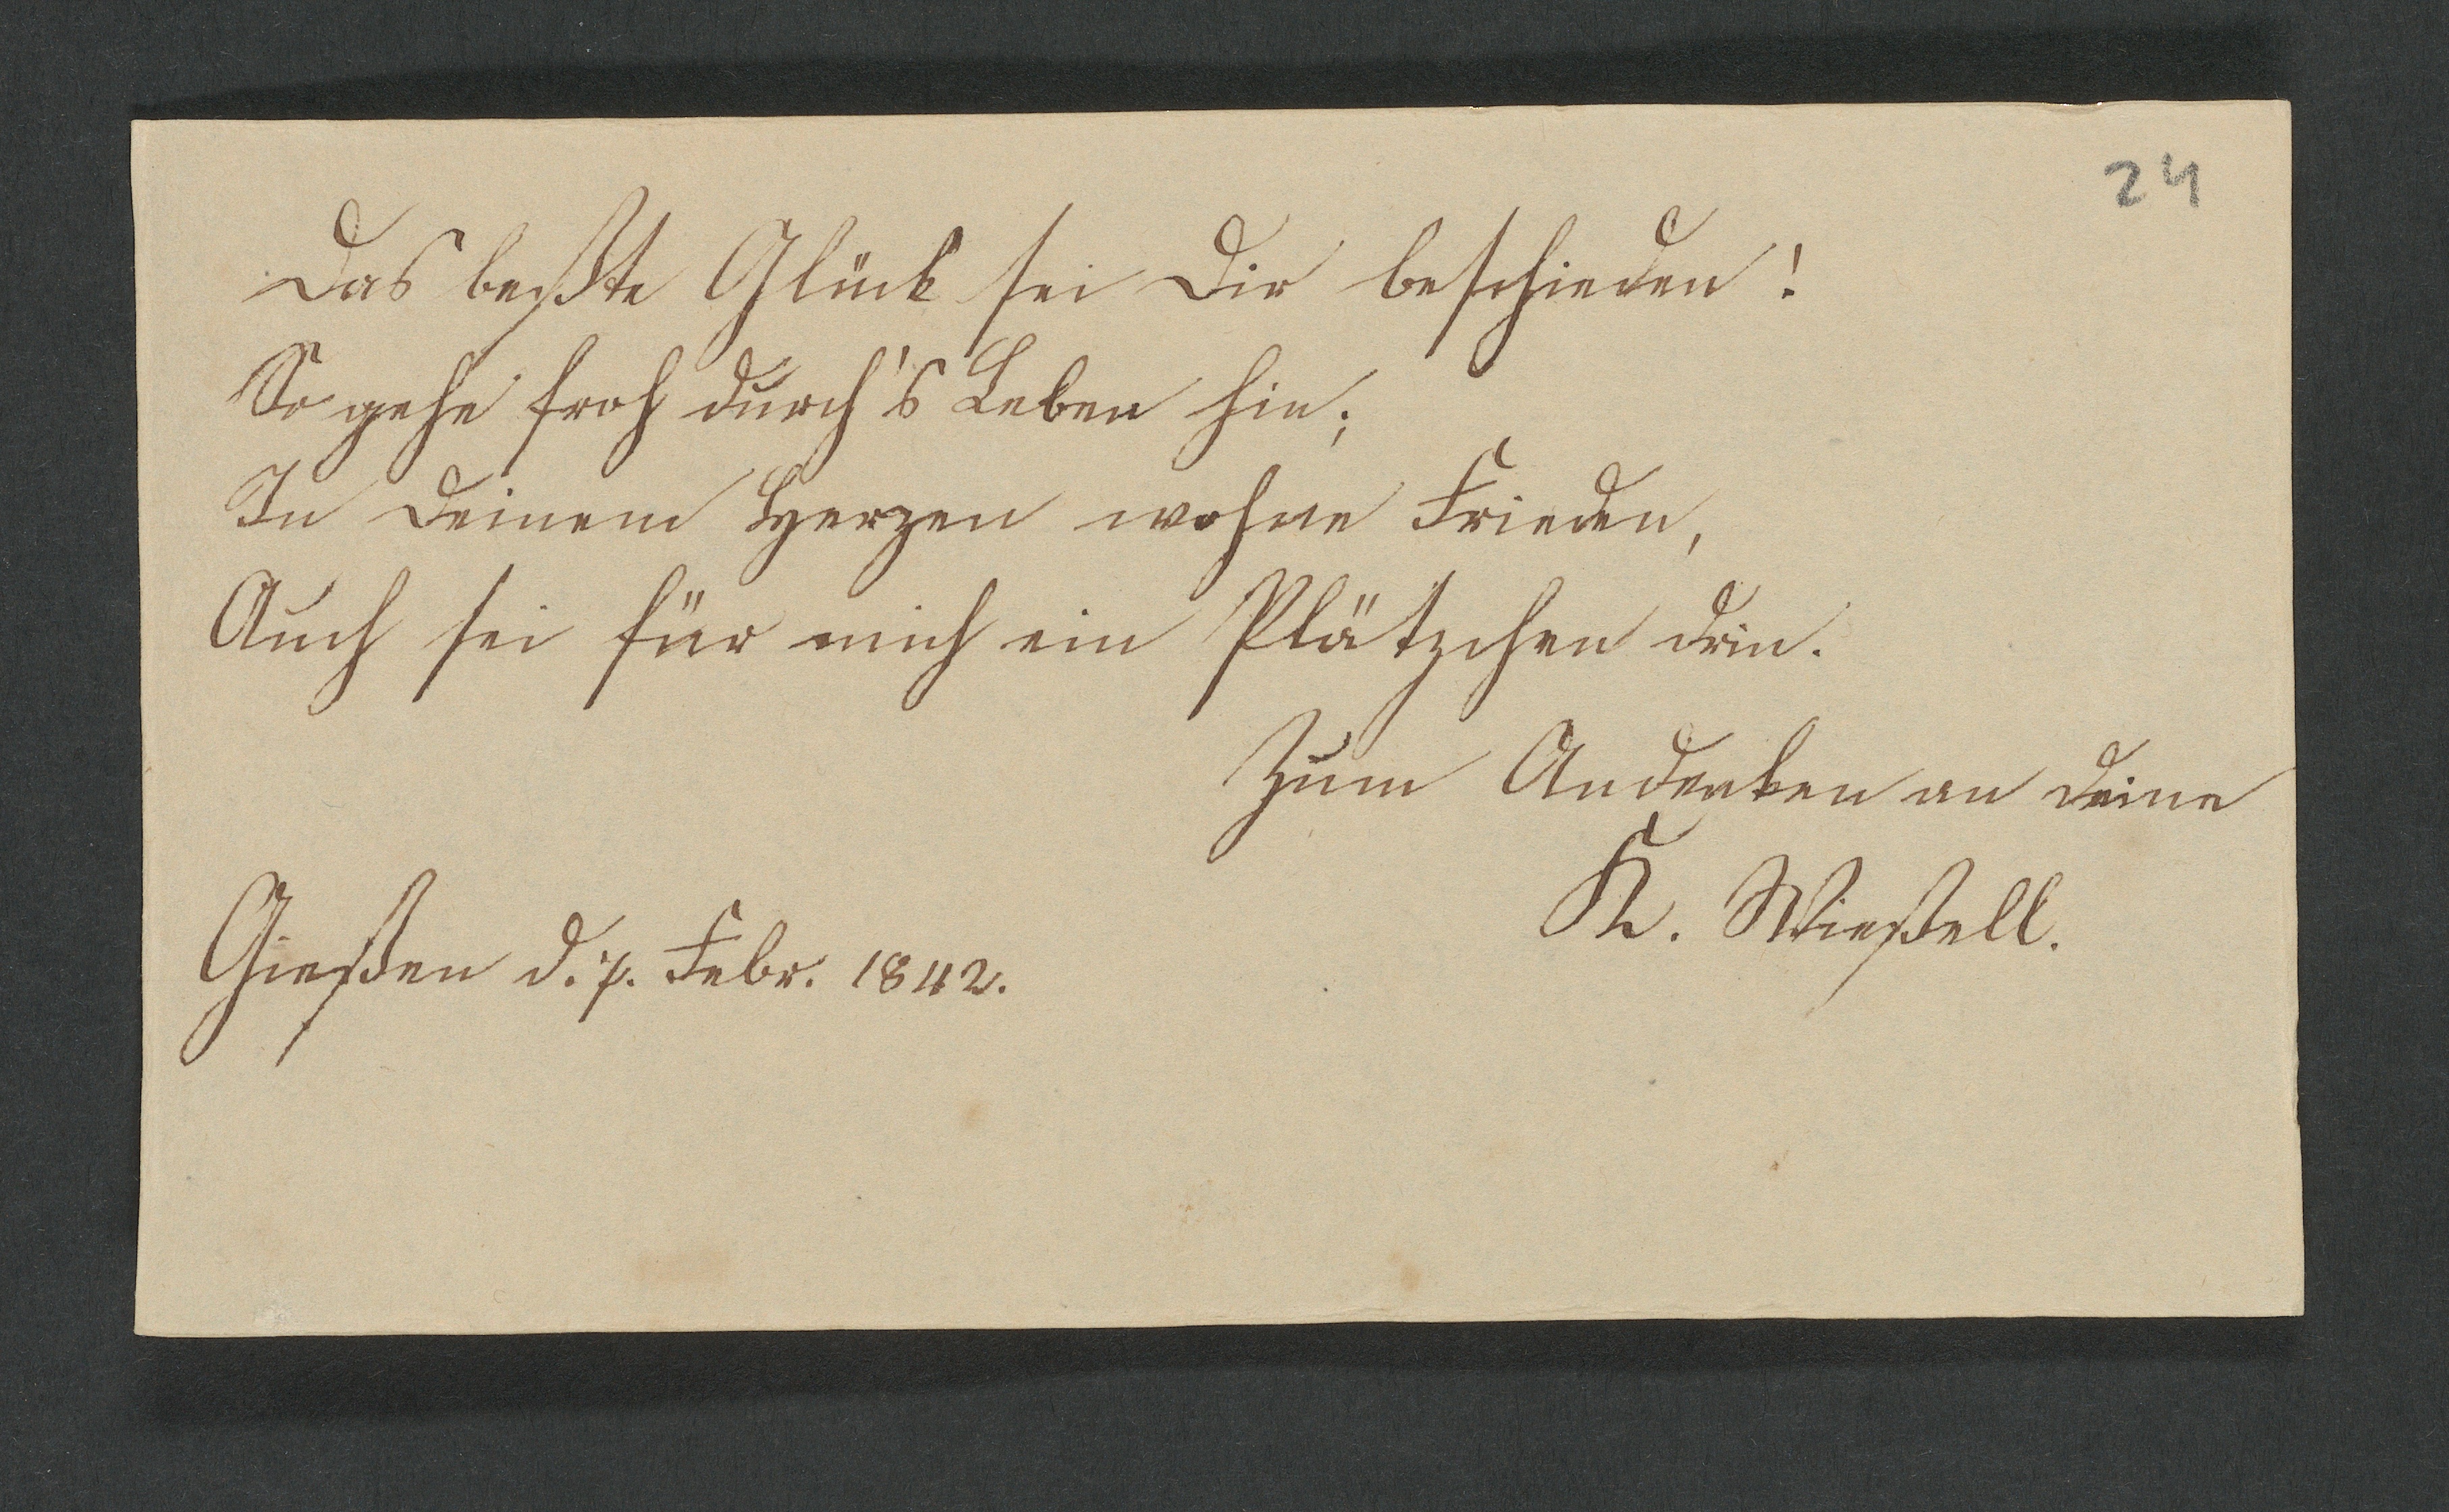 24
Das beßte Glück sei Dir beschieden!
So gehe froh durch's Leben hin;
In Deinem Herzen wohne Frieden,
Auch sei für mich ein Plätzchen drin.
Zum Andenken an Deine
K. Wießell.
Gießen d. 7. Febr. 1842.